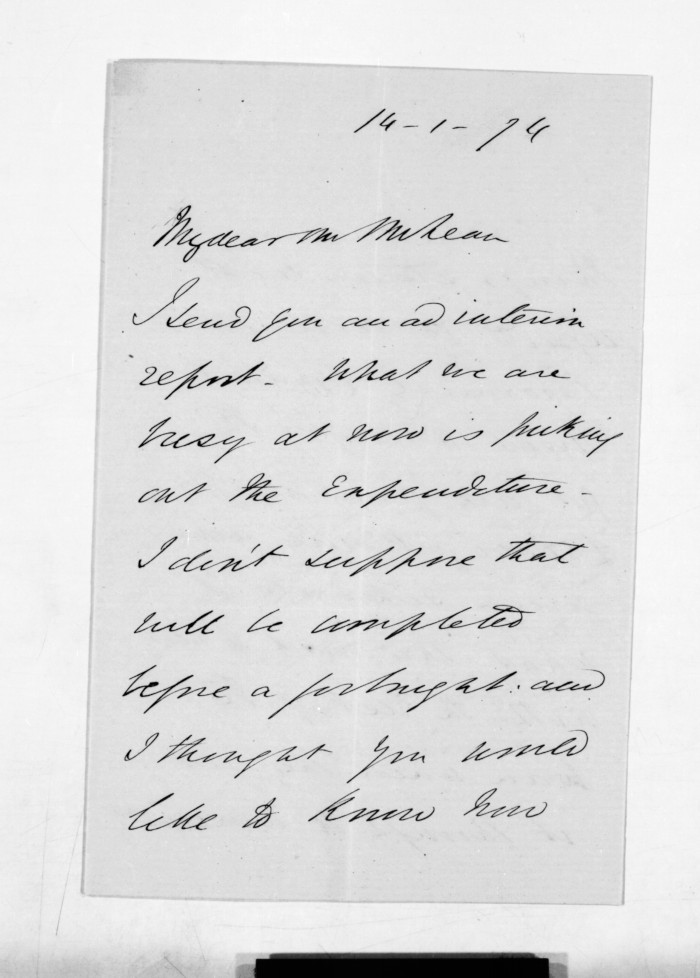 14-1-74
My dear Mr McLean
I send you an ad interim
report - What we are
busy at now is picking
out the Expenditure -
I don't suppose that
will be completed
before a fortnight. and
I thought you would
like to know how